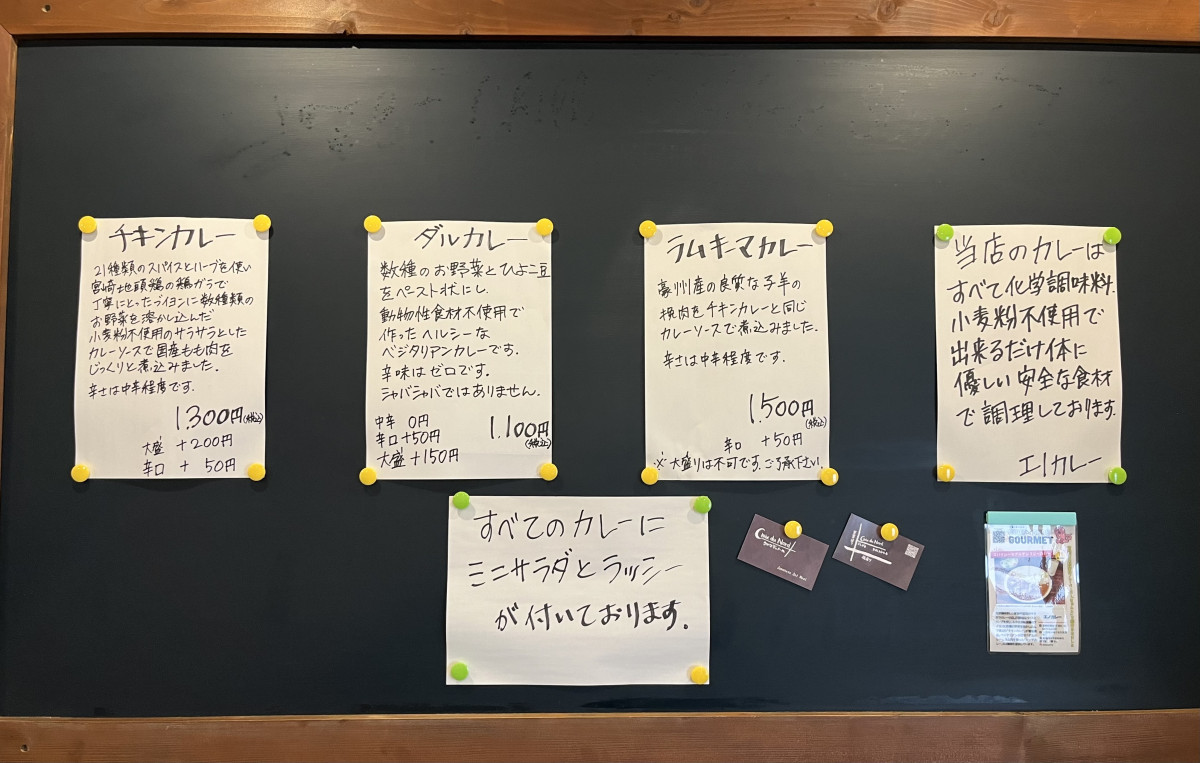 チキンカレー
21種類のスパイスとハーブを使い
宮崎地頭鶏の鶏ガラで
丁寧にとったブイヨンに数種類の
お野菜を溶かし込んだ
小麦粉不使用のサラサラとした
カレーソースで国産もも肉を
じっくりと煮込みました.
辛さは中辛程度です.
1.300円(税込)
大盛 +200円
辛口 + 50円
ダルカレー
数種のお野菜とひよこ豆
をペースト状にし.
動物性食材不使用で
作ったヘルシーな
ベジタリアンカレーです.
辛味はゼロです.
シャバシャバではありません.
中辛 0円
辛口+50円
大盛+150円
1.100円(税込)
ラムキーマカレー
豪州産の良質な子羊の
挽肉をチキンカレーと同じ
カレーソースで煮込みました.
辛さは中辛程度です.
1.500円(税込)
辛口 +50円
※大盛りは不可です.ご了承下さい.
当店のカレーは
すべて化学調味料.
小麦粉不使用で
出来るだけ体に
優しい安全な食材
で調理しております.
エノカレー
すべてのカレーに
ミニサラダとラッシー
が付いております.
GOURMET
エノカレー